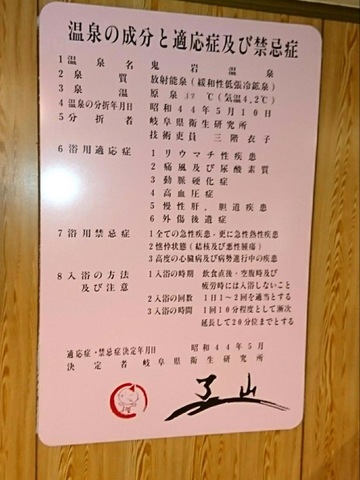 温泉の成分と適応症及び禁忌症
1 温泉名 鬼岩温泉
2 泉質 放射能泉(緩和性低張冷鉱泉)
3 泉温 原泉 ℃(気温4.2℃)
4 温泉の分折年月日 昭和44年5月10日
5 分折者 岐阜県衛生研究所
技術吏員 三階衣子
6 浴用適応症 1 リウマチ性疾患
2 痛風及び尿酸素質
3 動脈硬化症
4 高血圧症
5 慢性肝、胆道疾患
6 外傷後遺症
7 浴用禁忌症 1 全ての急性疾患・更に急性熱性疾患
2 憔悴状態(結核及び悪性腫瘍)
3 高度の心臓病及び病勢進行中の疾患
8 入浴の方法 1 入浴の時期 飲食直後・空腹時及び
及び注意 疲労時には入浴しないこと
2 入浴の回数 1日1〜2回を適当とする
3 入浴の時間 1回10分程度として漸次
延長して20分位までとする
適応症・禁忌症決定年月日 昭和44年5月
決定者 岐阜県衛生研究所
了山